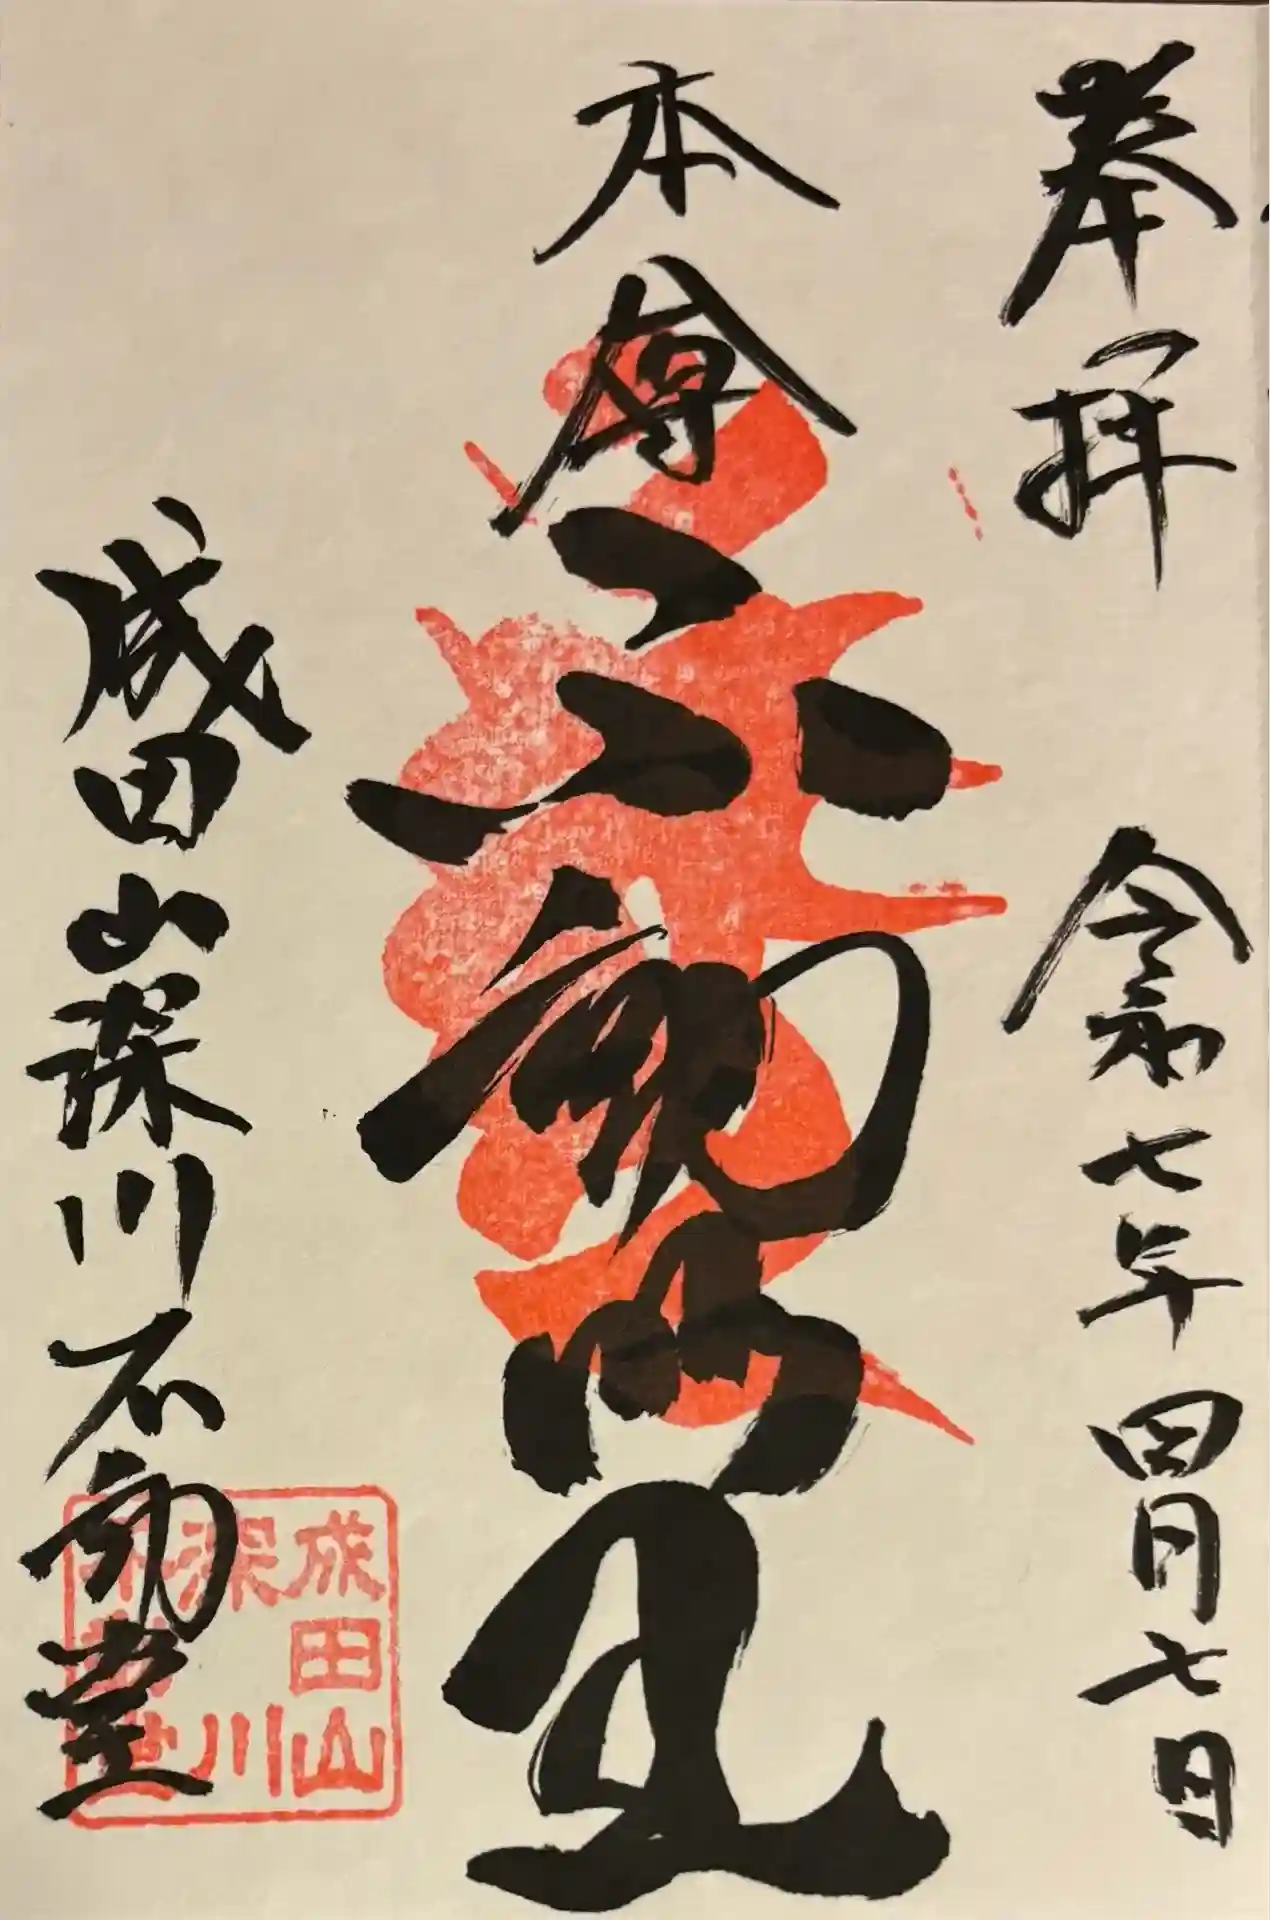 奉拝 令和七年四月七日
本尊 不動明王
成田山深川不動堂
成田山
深川